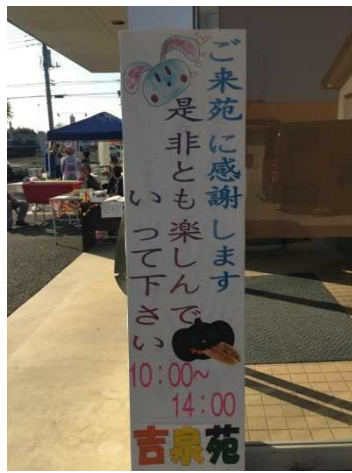 ご来苑に感謝します
是非とも楽しんで
いって下さい
10:00～
14:00
吉泉苑